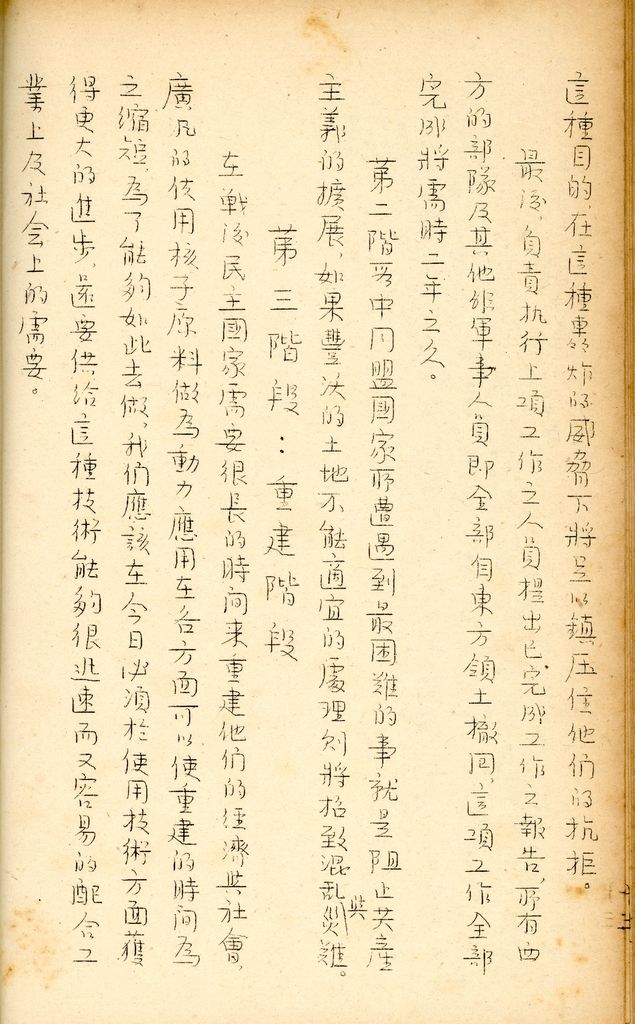 這種目的,在這種轟炸的威脅下將足以鎮压住他们的抗拒。
最後,負責执行上項工作之人員提出已完成工作之報告,所有西
方的部隊及其他非軍事人員即全部自東方領土撤回,這項工作全部
完成將需時二年之久。
第二階段中同盟國家所遭遇到最困难的事就是阻止共產
主義的擴展,如果豐沃的土地不能適宜的處理则將招致混乱與災難。
第三階段:重建階段
在戰後民主國家需要很長的時间来重建他们的經濟與社會,
廣汎的使用核子原料做為動力應用在各方面可以使重建的時间為
之縮短,為了能夠如此去做,我们應該在今日必須於使用技術方面獲
得更大的進步,還要供給這種技術能夠很迅速而又容易的配合工
業上及社会上的需要。